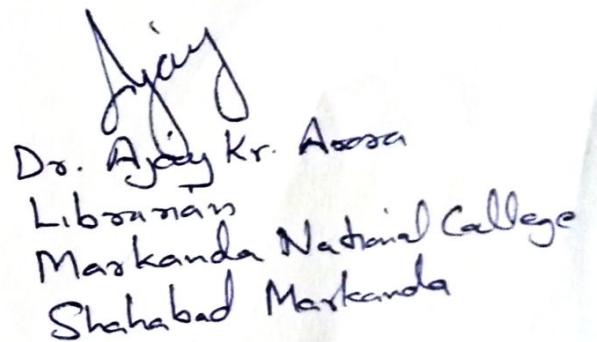 Ajay
Dr. Ajay Kr. Arora
Librarian
Markanda National College
Shahabad Markanda